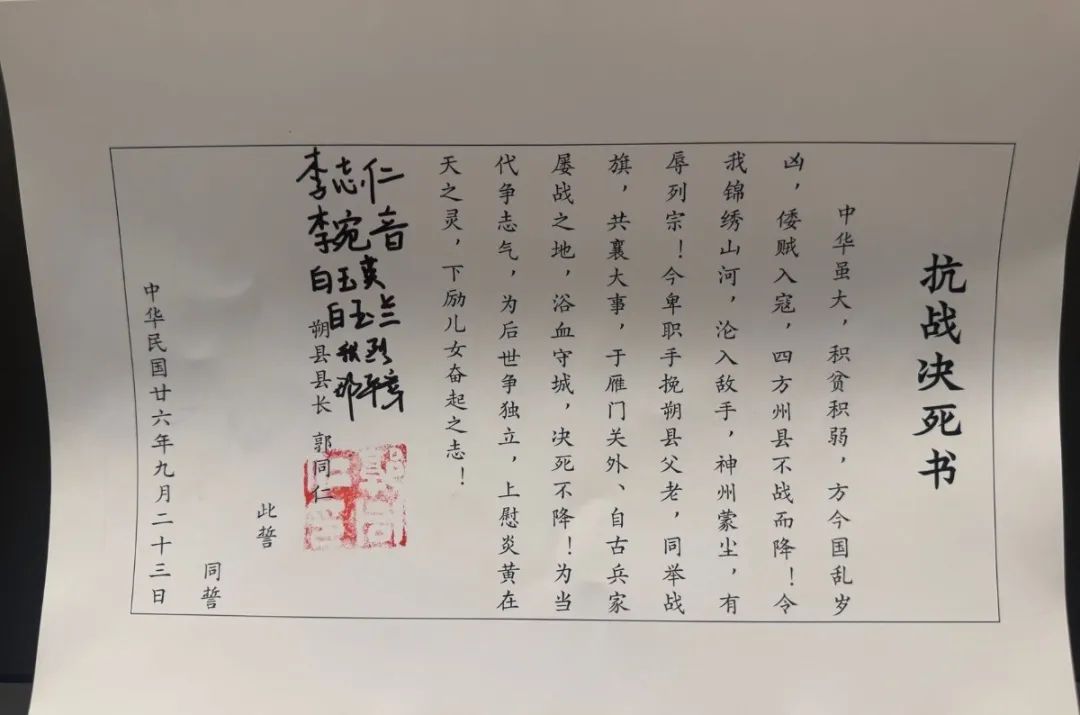 抗战决死书
中华虽大，积贫积弱，方今国乱岁
凶，倭贼入寇，四方州县不战而降！令
我锦绣山河，沦入敌手，神州蒙尘，有
辱列宗！今卑职手挽朔县父老，同举战
旗，共襄大事，于雁门关外、自古兵家
屡战之地，浴血守城，决死不降！为当
代争志气，为后世争独立，上慰炎黄在
天之灵，下励儿女奋起之志！
李志仁
李宛音
白玉
白玉兰
朔县县长 郭同仁
此誓
同誓
中华民国廿六年九月二十三日